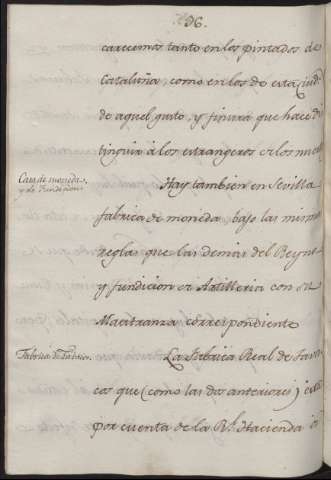 96.
carecemos tanto en los pintados de
Cataluña, como en los de esta Ciud.
de aquel gusto, y finura que hace di
tinguir à los estrangeros de los nues
Casa de moneda,
y de Fundicion.
Hay tambien en Sevilla
fabrica de moneda bajo las mismas
reglas que las demas del Reyno
y fundicion de Artilleria con su
Maestranza correspondiente
Fabrica de Tabacos.
La Fabrica Real de Tava
cos que (como las dos anteriores)
por cuenta de la Rl. Hacienda